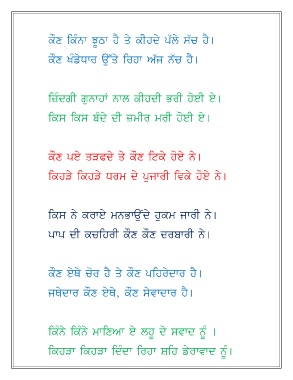 ਕੌਣ ਕਿੰਨਾ ਝੂਠਾ ਹੈ ਤੇ ਕੀਹਦੇ ਪੱਲੇ ਸੱਚ ਹੈ।
ਕੌਣ ਖੰਡੇਧਾਰ ਉੱਤੇ ਰਿਹਾ ਅੱਜ ਨੱਚ ਹੈ।
ਜ਼ਿੰਦਗੀ ਗੁਨਾਹਾਂ ਨਾਲ ਕੀਹਦੀ ਭਰੀ ਹੋਈ ਏ।
ਕਿਸ ਕਿਸ ਬੰਦੇ ਦੀ ਜ਼ਮੀਰ ਮਰੀ ਹੋਈ ਏ।
ਕੌਣ ਪਏ ਤੜਫਦੇ ਤੇ ਕੌਣ ਟਿਕੇ ਹੋਏ ਨੇ।
ਕਿਹੜੇ ਕਿਹੜੇ ਧਰਮ ਦੇ ਪੁਜਾਰੀ ਵਿਕੇ ਹੋਏ ਨੇ।
ਕਿਸ ਨੇ ਕਰਾਏ ਮਨਭਾਉਂਦੇ ਹੁਕਮ ਜਾਰੀ ਨੇ।
ਪਾਪ ਦੀ ਕਚਹਿਰੀ ਕੌਣ ਕੌਣ ਦਰਬਾਰੀ ਨੇ।
ਕੌਣ ਏਥੇ ਚੋਰ ਹੈ ਤੇ ਕੌਣ ਪਹਿਰੇਦਾਰ ਹੈ।
ਜਥੇਦਾਰ ਕੌਣ ਏਥੇ, ਕੌਣ ਸੇਵਾਦਾਰ ਹੈ।
ਕਿੰਨੇ ਕਿੰਨੇ ਮਾਣਿਆ ਏ ਲਹੂ ਦੇ ਸਵਾਦ ਨੂੰ ।
ਕਿਹੜਾ ਕਿਹੜਾ ਦਿੰਦਾ ਰਿਹਾ ਸ਼ਹਿ ਡੇਰਾਵਾਦ ਨੂੰ।